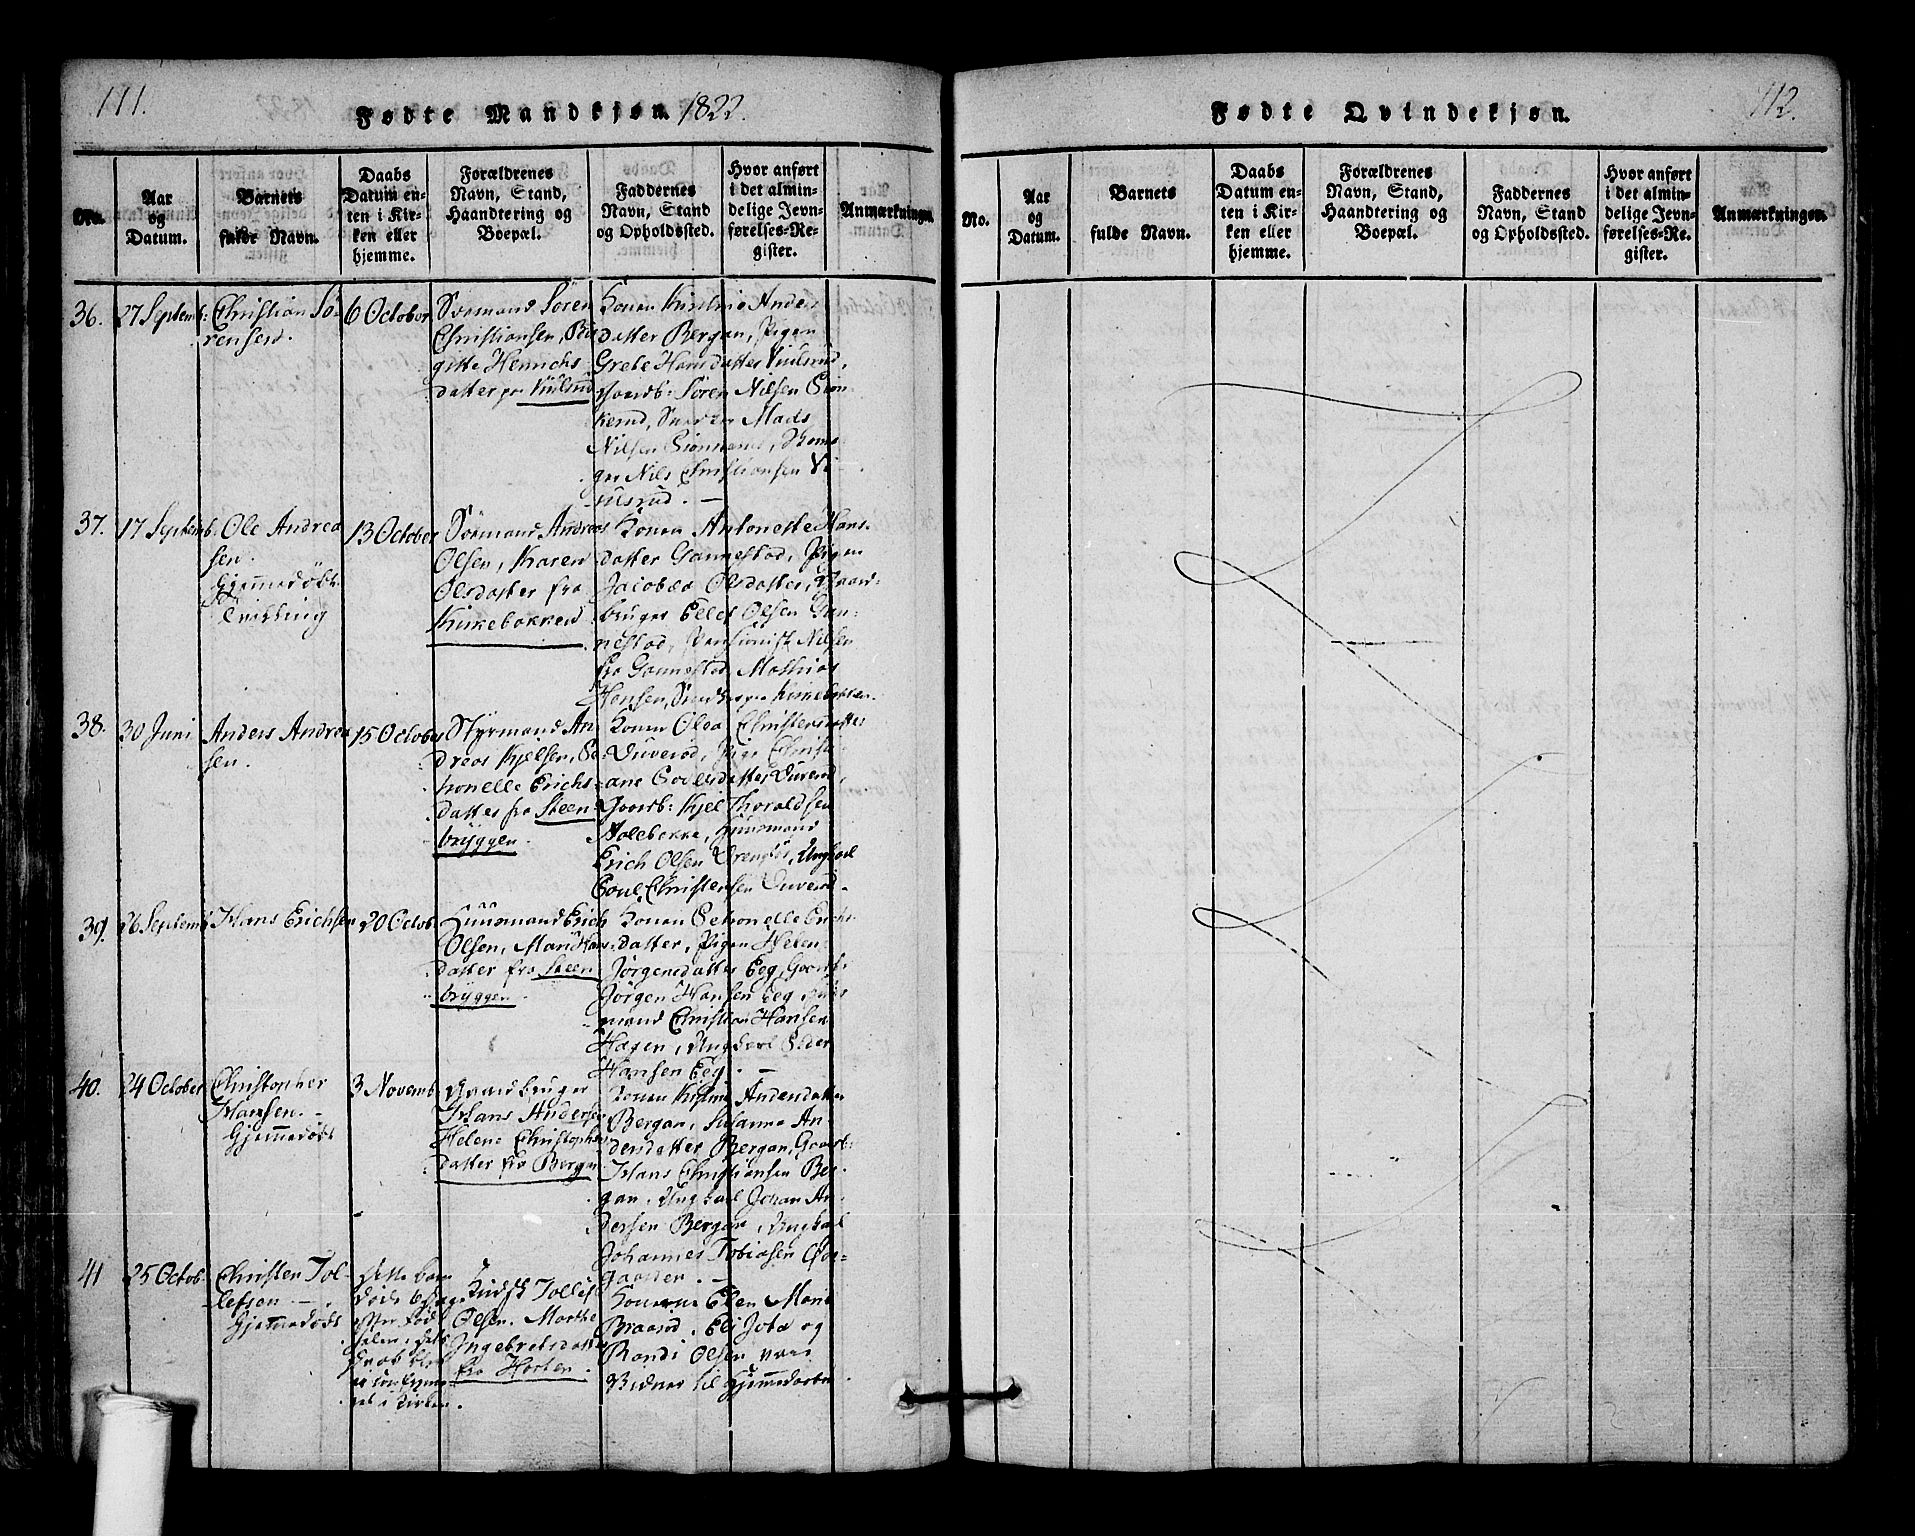 111.
Fødte Mandkjøn. 1822.
No.
Aar
og
Datum.
Barnets
fulde Navn.
Daabs
Datum en-
ten i Kir-
ken eller
hjemme.
Forældrenes
Navn, Stand,
Haandtering og
Boepæl.
Faddernes
Navn, Stand
og Opholdssted.
Hvor anført
i det almin-
delige Jevn-
førelses-Re-
gister.
Anmærkninger.
36.
27 Septemb:
Christian Sö-
rensen.
6 October
Sömand Sören
Christiansen, Bir
gitte Henrichs
datter
Konen Kirstine Anders
datter Bergan, Pigen
Grete Hansdatter
Gaardb: Sören Nilsen
Mads
Nilsen
ger Nils Christiansen
37.
17 Septemb:
Ole Andrea
sen.
Gjemmedöbt.
Tvilling
13 October
Sömand Andreas
Olsen, Karen
Olsdatter fra
Kirkebakken
Konen Antonette Hans-
datter Gannestad, Pigen
Jacobea Olsdatter, Gaard-
bruger Ellef Olsen Gan-
nestad, Nilsen
fra Gannestad Mathias
Hansen,
38.
30 Juni
Anders Andrea
sen.
15 October
Styrmand An
dreas Kjelsen, Pe
tronelle Erichs
datter fra Steen
bryggen
Konen Olea Christensdatter
Duverød, Pige Christi
ane Poulsdatter Duverød,
Gaardb: Kjel Thoraldsen
Holebakke, Huusmand
Erich Olsen Ungkarl
Poul Christensen Duverød.
39.
26 Septemb
Hans Erichsen
20 Octob.
Huusmand Erich
Olsen, Mari Hans-
datter fra Steen
bryggen.
Konen Petronelle Erichs-
datter, Pigen Helen
Jörgensdatter Eeg, Gaardb.
Jörgen Hansen Eeg, Huus
mand Christian Hansen
Hagen, Ungkarl Peder
Hansen Eeg.
40.
24 October
Christopher
Hansen.
Gjemmedöbt
3 Novemb.
Gaardbruger
Hans Andersen
Helene Christopher
datter fra Bergan
Konen Kirstine Andersdatter
Bergan, Susanne An-
dersdatter Bergan, Gaardb:
Hans Christiansen Ber-
gan, Ungkarl Johan An-
dersen Bergan, Ungkarl
Johannes Tobiasen
gaarden.
41
25 Octob.
Christen Tol-
lefsen
Gjemmedöbt
Dette barn
döde
efter Föd
selen, dets
Daab blev
i Kirken.
Tollef
Olsen. Marthe
Ingebretsdatter
fra Horten.
Konerne Ellen Marie
Braarød, Eli Joba og
Randi Olsen vare
Vidner til Hjemmedaaben
112.
Fødte Qvindekjøn.
No.
Aar
og
Datum.
Barnets
fulde Navn.
Daabs
Datum en-
ten i Kir-
ken eller
hjemme.
Forældrenes
Navn, Stand,
Haandtering og
Boepæl.
Faddernes
Navn, Stand
og Opholdssted.
Hvor anført
i det almin-
delige Jevn-
førelses-Re-
gister.
Anmærkninger.